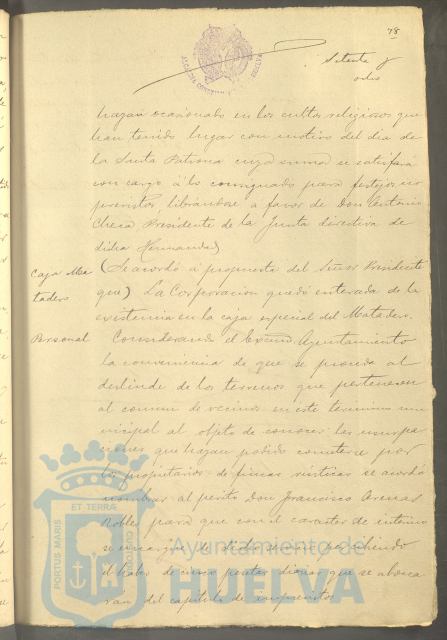 78
Setenta y
ocho
ALCALDIA CONSTITUCIONAL HUELVA
hayan ocasionado en los cultos religiosos que
han tenido lugar con motivo del dia de
la Santa Patrona cuya suma se satisfará
con cargo á lo consignado para festejos
previstos librándose a favor de Don Antonio
Checa Presidente de la Junta directiva de
dicha Hermandad
Caja Ma
tadero
(Se acordó á propuesta del Señor Presidente
que) La Corporacion quedó enterada de la
existencia en la caja especial del Matadero.
Personal
Considerando el Excmo. Ayuntamiento
la conveniencia de que se proceda al
deslinde de los terrenos que pertenecen
al comun de vecinos en este termino mu
nicipal al objeto de conocer las usurpa
ciones que hayan podido cometerse por
los propietarios de fincas rústicas se acordó
nombrar al perito Don Francisco Arenas
Robles para que con el caracter de interino
se encargue de dicho percibiendo
el haber de cinco pesetas diarias que se abona
rán del capítulo de imprevistos
PORTUS MARIS ET TERRÆ CUSTODIA
Ayuntamiento de
HUELVA